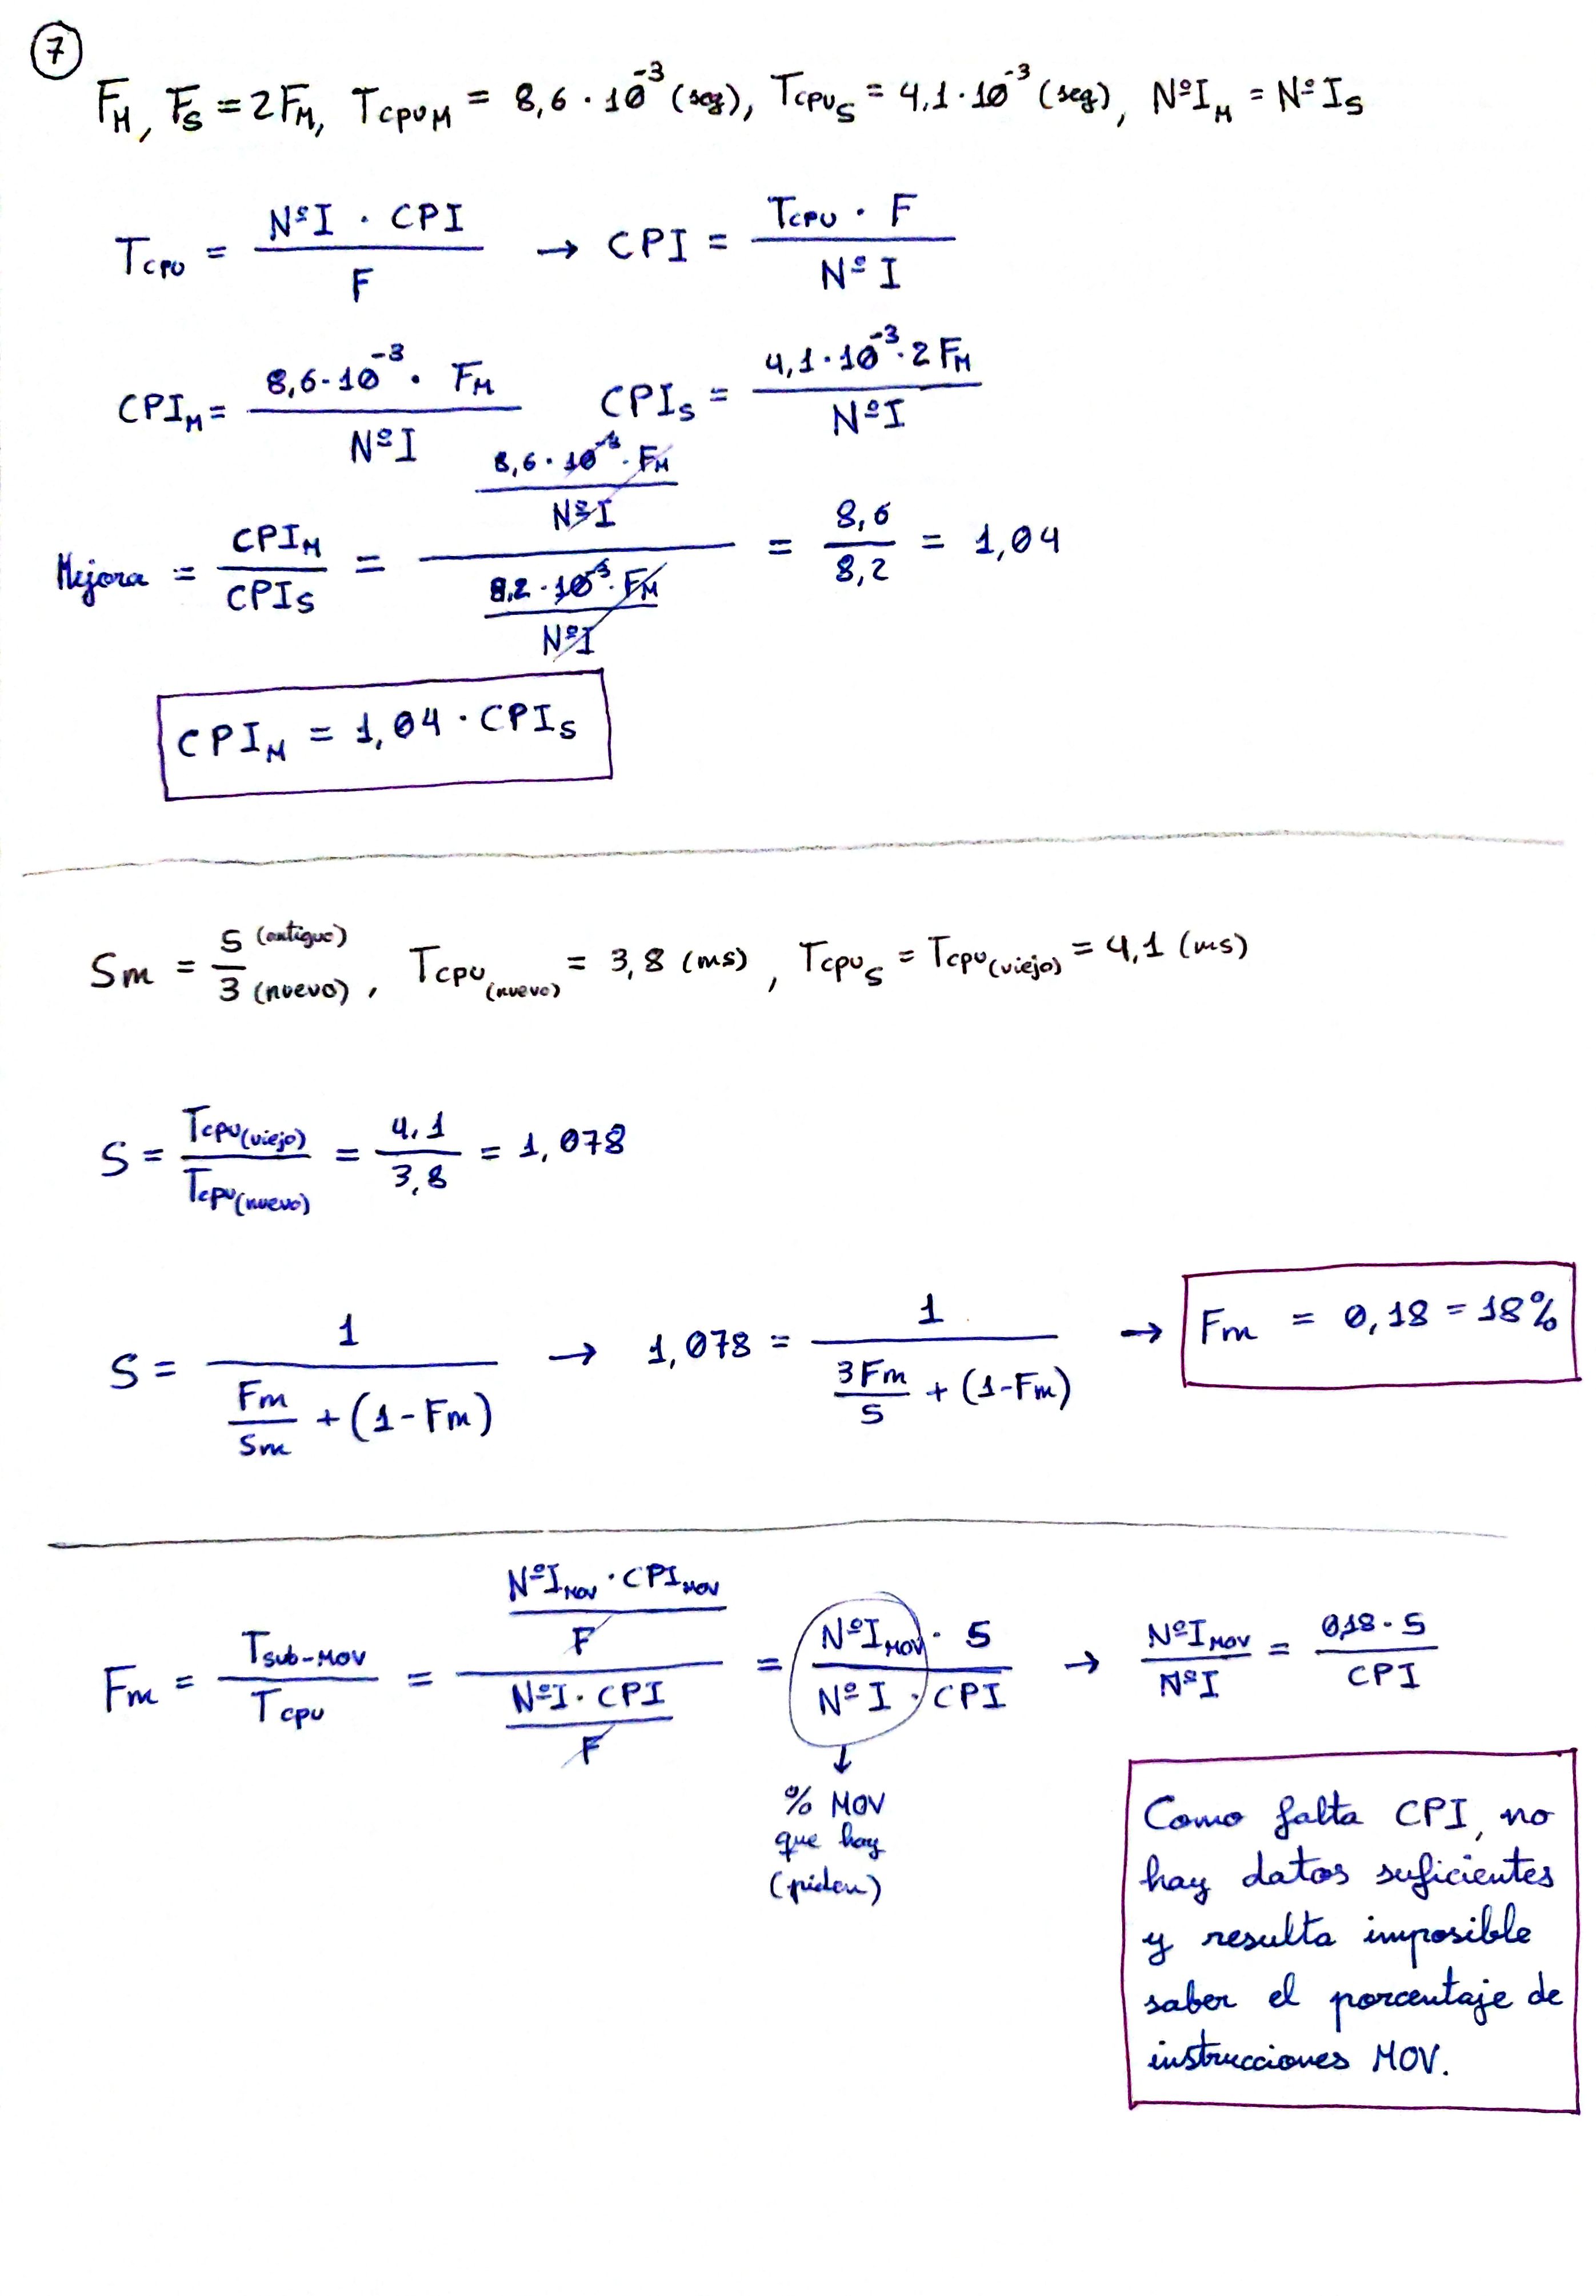 7
F_M, F_S = 2F_M, T_CPU_M = 8,6 · 10^-3 (seg), T_CPU_S = 4,1 · 10^-3 (seg), NºI_M = Nº I_S
T_CPU = (NºI · CPI) / F → CPI = (T_CPU · F) / Nº I
CPI_M = (8,6 · 10^-3 · F_M) / NºI   CPI_S = (4,1 · 10^-3 · 2 F_M) / NºI
Mejora = CPI_M / CPI_S = ((8,6 · 10^-3 · F_M) / NºI) / ((8,2 · 10^-3 · F_M) / NºI) = 8,6 / 8,2 = 1,04
CPI_M = 1,04 · CPI_S
Sm = 5 (antiguo) / 3 (nuevo), T_CPU (nuevo) = 3,8 (ms), T_CPU_S = T_CPU (viejo) = 4,1 (ms)
S = T_CPU (viejo) / T_CPU (nuevo) = 4,1 / 3,8 = 1,078
S = 1 / (Fm / Sm + (1 - Fm)) → 1,078 = 1 / (3Fm / 5 + (1-Fm)) → Fm = 0,18 = 18%
Fm = T_SUB-MOV / T_CPU = ((NºI_MOV · CPI_MOV) / F) / ((NºI · CPI) / F) = (NºI_MOV · 5) / (Nº I · CPI) → NºI_MOV / NºI = (0,18 · 5) / CPI
↓
% MOV
que hay
(piden)
Como falta CPI, no
hay datos suficientes
y resulta imposible
saber el porcentaje de
instrucciones MOV.